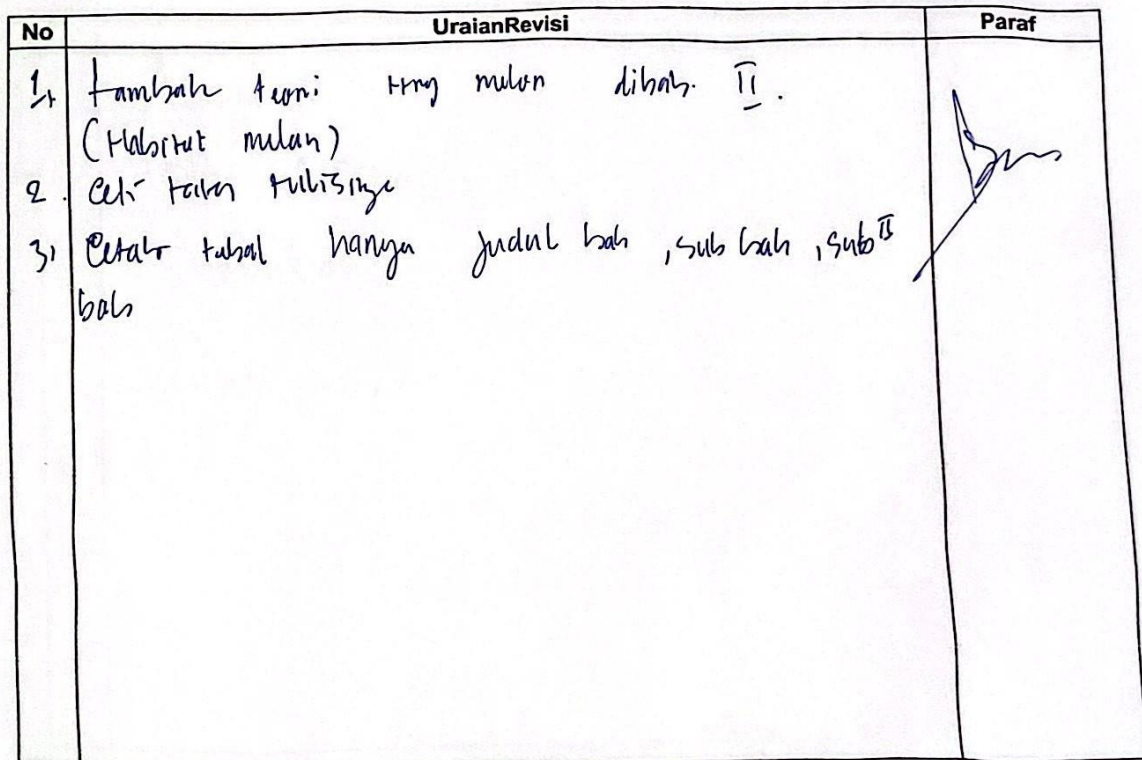 No UraianRevisi Paraf
1, tambah teori ttng melon dibab. II.
(Habitat melon)
2. Cek tulisnya
3, Cetak tebal hanya judul bab, sub bab, sub II
bab